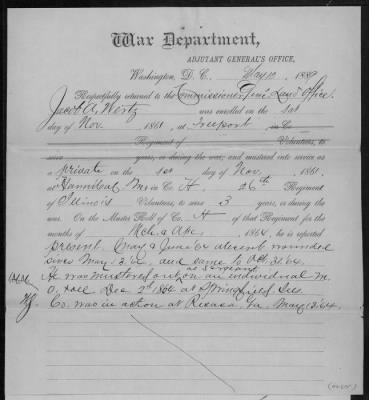 War Department,
ADJUTANT GENERAL'S OFFICE,
Washington, D. C. May 10, 1889
Respectfully returned to the Commissioner Gen'l Land Office.
Jacob A. Wertz was enrolled on the 1st
day of Nov. 1861, at Freeport in Co
Regiment of Volunteers, to
serve years, or during the war, and mustered into service as
a private on the 1st day of Nov. 1861,
at Hannibal Mo in Co. H. 26th Regiment
of Illinois Volunteers, to serve 3 years, or during the
war. On the Muster Roll of Co. H of that Regiment for the
months of Mch & Apr. 1864, he is reported
present. May & June 64 absent wounded
since May 13, 64, and same to Oct. 31, 64.
as Sergeant
He was mustered out on an individual m.
o. roll Dec 2d 1864 at Springfield Ills.
Co. was in action at Resaca, Ga. May 13, 64.
(over)